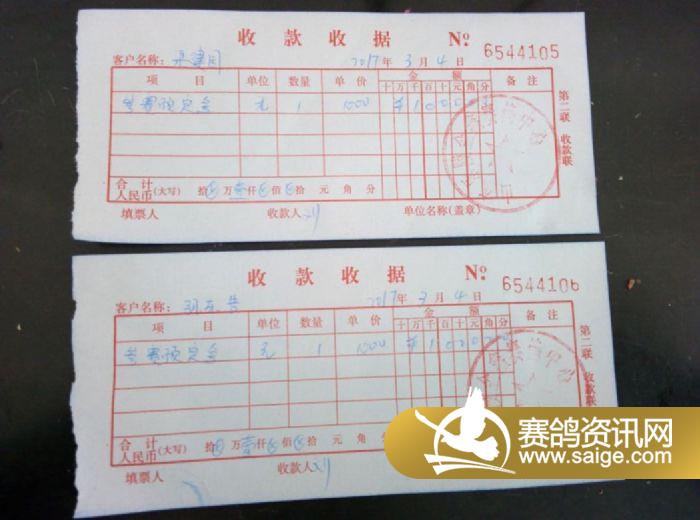 收款收据 № 6544105
客户名称: 2017年3月4日
项目 单位 数量 单价 金额 备注
十万千百十元角分
参赛预定金 元 1 1000 ¥1000
合计人民币(大写) 拾 万壹仟 佰 拾 元 角 分
填票人 收款人 刘 单位名称(盖章)
第二联 收款联
收款收据 № 6544106
客户名称: 2017年3月4日
项目 单位 数量 单价 金额 备注
十万千百十元角分
参赛预定金 元 1 1000 ¥1000
合计人民币(大写) 拾 万壹仟 佰 拾 元 角 分
填票人 收款人 刘
第二联 收款联
赛鸽资讯网
www.saige.com